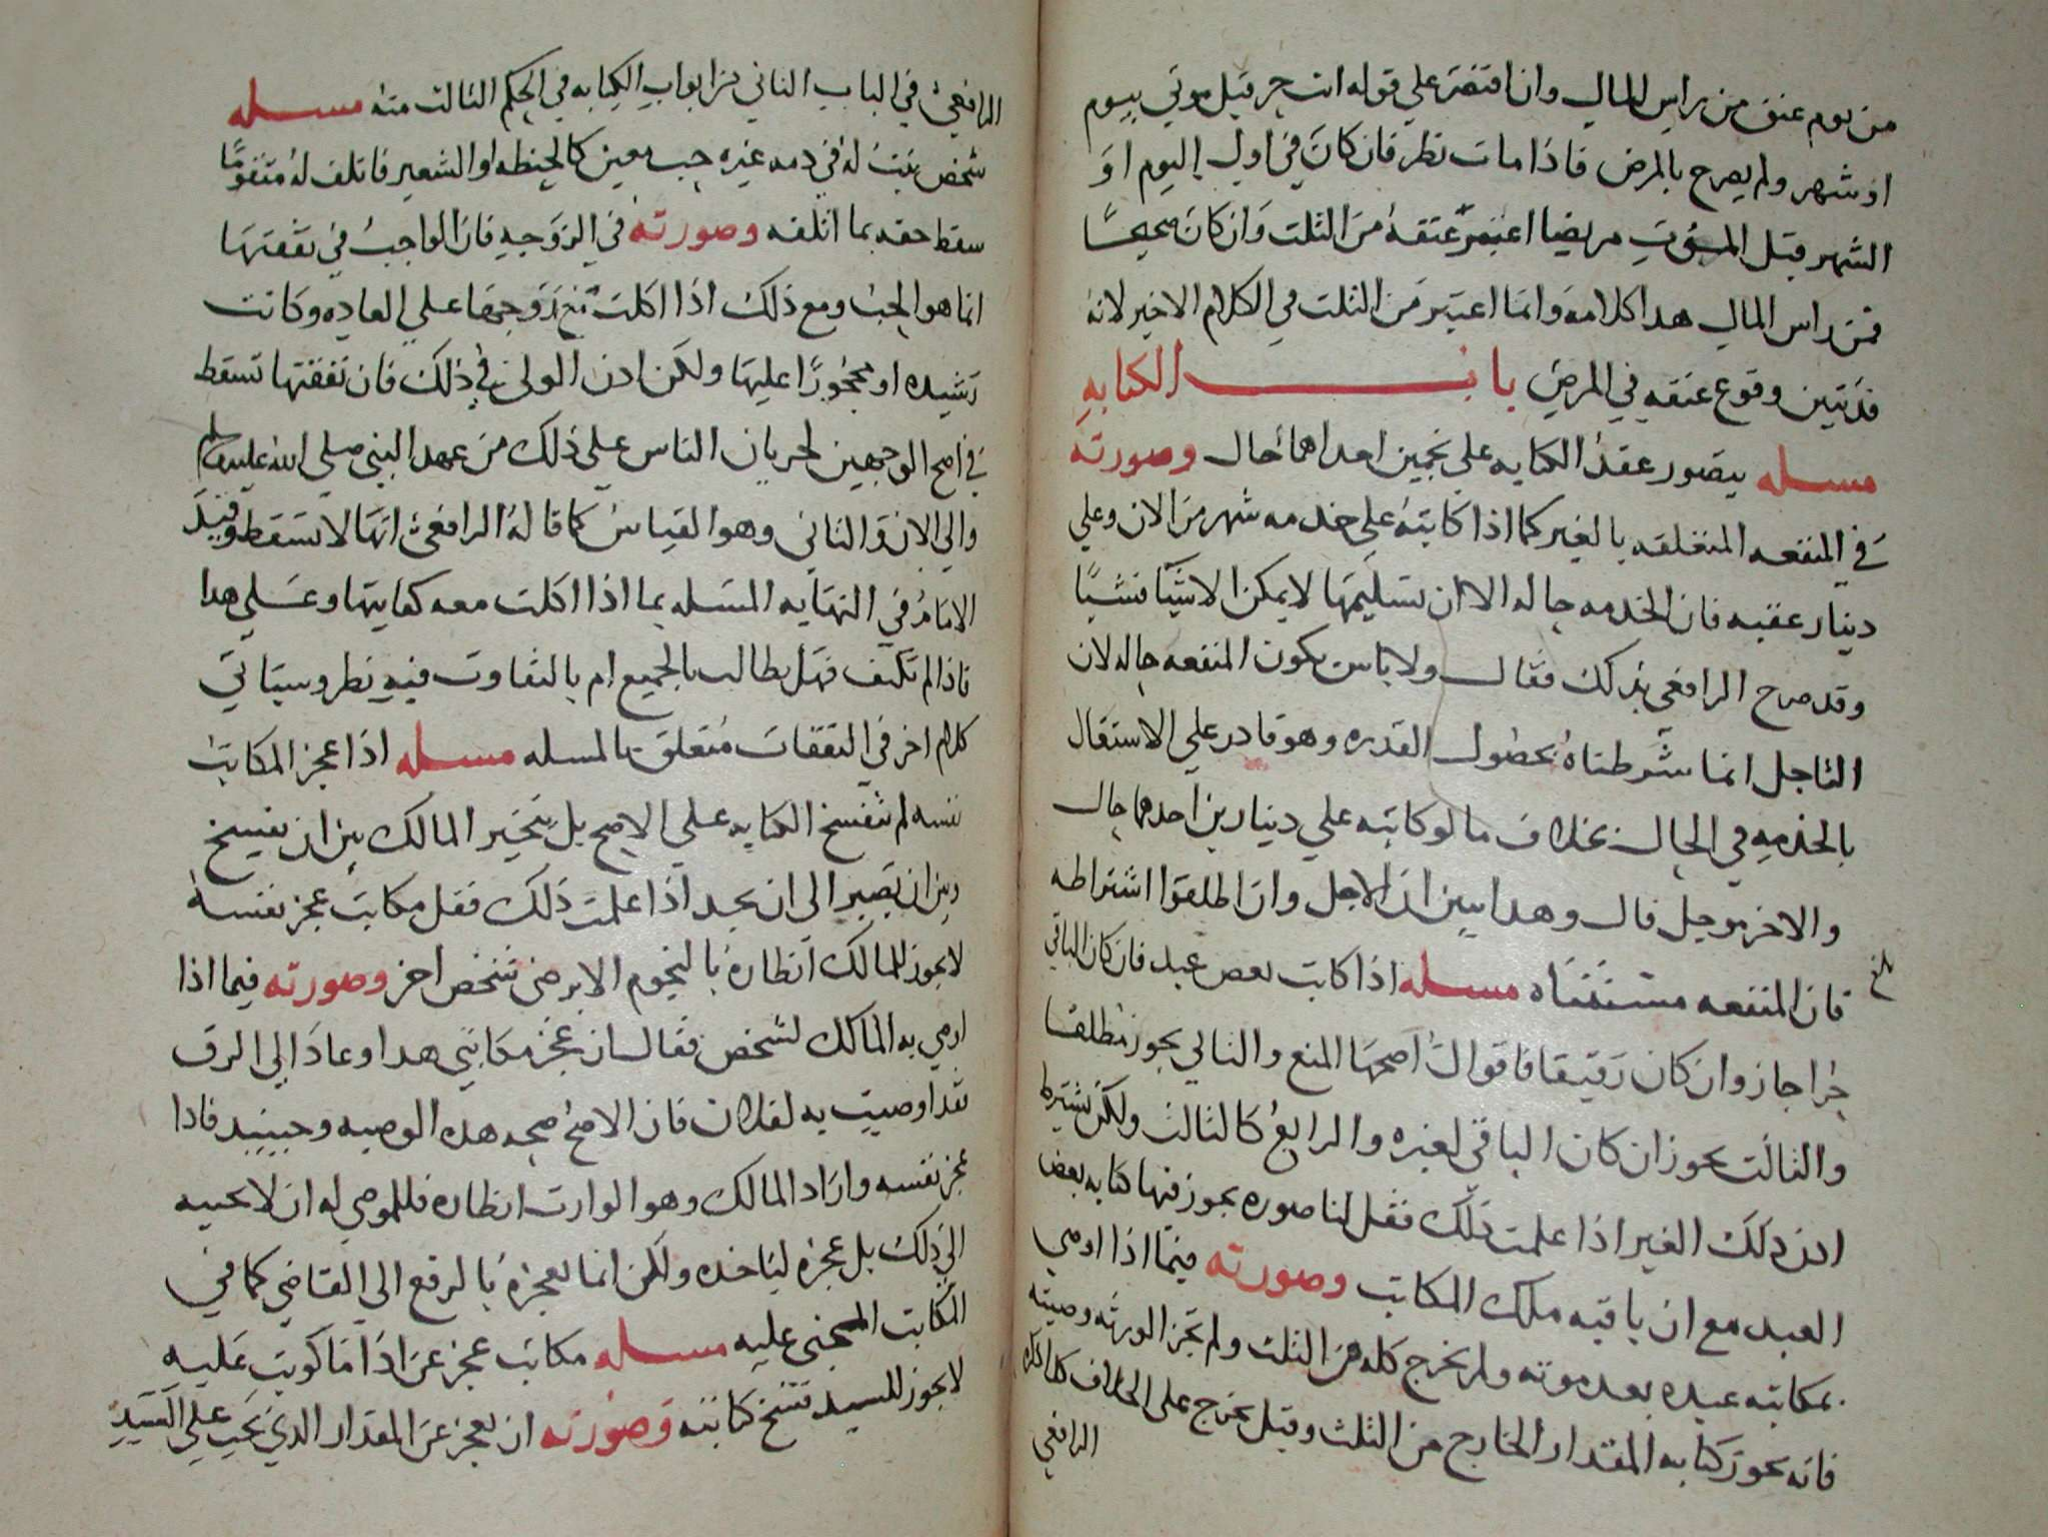 من يوم عتق من راس المال وان اقتصر علي قوله انت حر قبل موتي بيوم
او شهر ولم يصرح بالمرض فاذا مات نظر فان كان في اول اليوم او
الشهر قبل الموت مريضا اعتبر عتقه من الثلت وان كان صحيحا
فمن راس المال هدا كلامه وانما اعتبر من الثلت في الكلام الاخير لانه
قد تبين وقوع عتقه في المرض باب الكتابه
مسله يتصور عقد الكتابه علي نجمين احداهما حال وصورته
في المنفعه المتعلقه بالغير كما اذا كاتبه علي خدمه شهر من الان وعلي
دينار عقبه فان الخدمه حاله الا ان تسليمها لا يمكن الا شيا فشيا
وقد صرح الرافعي بذلك فقال ولا باس بكون المنفعه حاله لان
التاجل انما شرطناه لحصول القدره وهو قادر علي الاشتغال
بالخدمه في الحال بخلاف ما لو كاتبه علي دينارين احدهما حال
والاخر موجل قال وهدا يبين ان الاجل وان اطلقوا اشتراطه
فان المنفعه مستثناه مسله اذا كاتب بعض عبد فان كان الباقي
حرا جاز وان كان رقيقا فاقوال اصحها المنع والثاني يجوز مطلقا
والثالث يجوز ان كان الباقي لغيره والرابع كالثالث ولكن يشترط
ادن دلك الغير اذا علمت ذلك فقل لنا صوره يجوز فيها كتابه بعض
العبد مع ان باقيه ملك المكاتب وصورته فيما اذا اوصي
بمكاتبه عبده بعد موته ولم يخرج كله من الثلث ولم تجز الورثه وصيته
فانه يجوز كتابه المقدار الخارج من الثلث وقيل يخرج علي الخلاف كدا ذكره
الرافعي
الرافعي في الباب الثاني من ابواب الكتابه في الحكم الثالث منه مسله
شخص يثبت له في دمه غيره حب معين كالحنطه او الشعير فاتلف له متقوما
سقط حقه بما اتلفه وصورته في الزوجيه فان الواجب في نفقتها
انما هو الحب ومع ذلك اذا اكلت مع زوجها علي العاده وكانت
رشيده او محجورا عليها ولكن ادن الولي في ذلك فان نفقتها تسقط
في اصح الوجهين لجريان الناس علي ذلك من عهد النبي صلي الله عليه وسلم
والي الان والثاني وهو القياس كما قاله الرافعي انها لا تسقط وقيد
الامام في النهايه المسله بما اذا اكلت معه كفايتها وعلي هدا
فاذا لم تكتف فهل يطالب بالجميع ام بالتفاوت فيه نظر وسياتي
كلام اخر في النفقات متعلق بالمسله مسله اذا عجز المكاتب
نفسه لم تنفسخ الكتابه علي الاصح بل يتخير المالك بين ان يفسخ
وبين ان يصبر الي ان يجد اذا علمت ذلك فقل مكاتب عجز نفسه
لا يجوز للمالك انظاره بالنجوم الا برضي شخص اخر وصورته فيما اذا
اوصي به المالك لشخص فقال ان عجز مكاتبي هدا وعاد الي الرق
فقد اوصيت به لفلان فان الاصح صحه هده الوصيه وحينيد فادا
عجز نفسه واراد المالك وهو الوارث انظاره فللموصي له ان لا يجيبه
الي ذلك بل عجزه لياخده ولكن انما يعجزه بالرفع الي القاضي كما في
المكاتب المجني عليه مسله مكاتب عجز عن اداء ما كوتب عليه
لا يجوز للسيد فسخ كتابته وصورته ان يعجز عن المقدار الذي يجب علي السيد